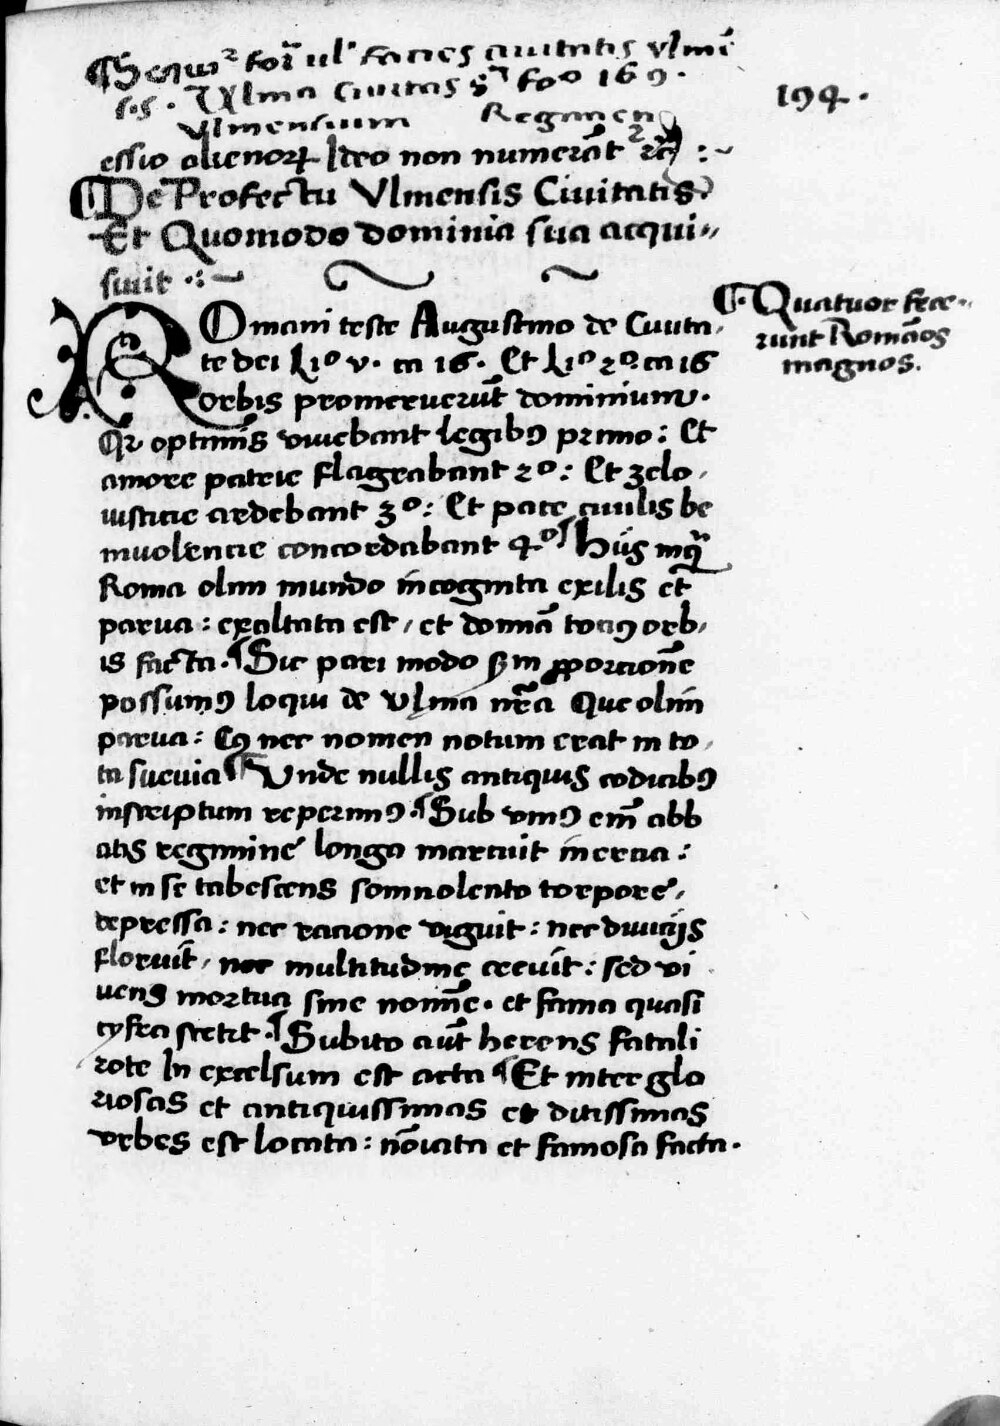 ¶Sequit᷑ for̄ ul' facies ciuitatis Vlmē
sis. Vlma Ciuitas s̄ foº 169.
194.
Vlmensium Regimen
essio alienoꝝ Ideo non numerāt᷑ rc̄ :~
¶De Profectu Vlmensis Ciuitatis
Et Quomodo dominia sua acqui⸗
siuit .:~
ROmani teste Augustino de Ciuita⸗
te dei Liº v. ca 16. Et Liº 2º. ca 16
orbis promeruerūt dominium.
¶. Quatuor fece⸗
runt Romāos
magnos.
Qr optimis viuebant legibꝰ primo: Et
amore patrie flagrabant 2º: Et zelo
iusticie ardebant 3º: Et pace ciuilis be
niuolencie concordabant 4º ¶Hijs inqͣ
Roma olim mundo incognita exilis et
parua: exaltata est, et domīa tociꝰ orb⸗
is facta. ¶Sic pari modo sm̄ ꝓporcionē
possumꝰ loqui de Vlma nr̄a Que olim
parua: Cꝰ nec nomen notum erat in to⸗
ta sueuia ¶Vnde nullis antiquis codicibꝰ
inscriptum reperimꝰ. ¶Sub vniꝰ em̄ abb
atis regimine longa marcuit inercia:
et in se tabescens somnolento torpore,
depressa: nec racione viguit: nec diuicijs
floruit, nec multitudine creuit: sed vi
uens mortua sine nomīe. et fama quasi
cyfra stetit. ¶Subito aūt herens fatali
rote In excelsum est acta ¶Et inter glo
riosas et antiquissimas et ditissimas
vrbes est locata: nōiata et famosa facta.